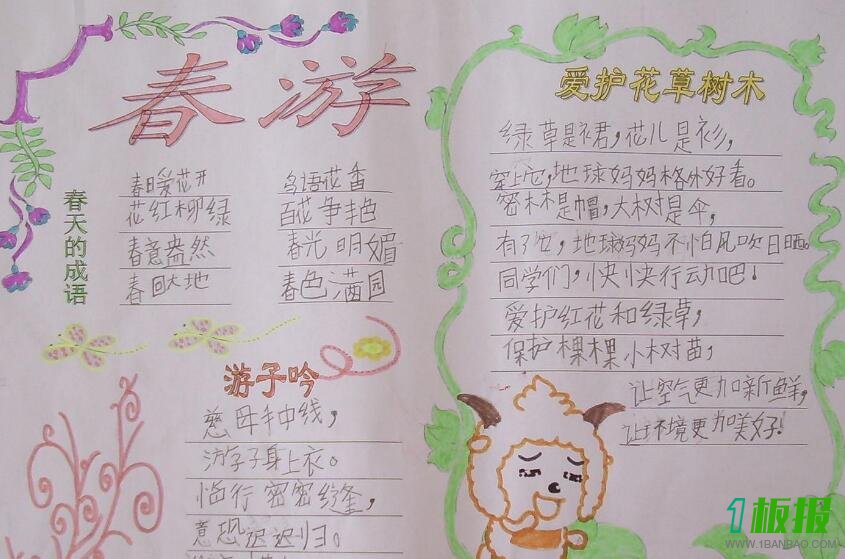 春游
春天的成语
春日爱花开 鸟语花香
花红柳绿 百花争丰色
春意盎然 春光明媚
春回大地 春色满园
游子吟
慈母手中线，
游子身上衣。
临行密密缝，
意恐迟迟归。
爱护花草树木
绿草是裙，花儿是衫，
穿上它，地球妈妈格外好看。
密林是帽，大树是伞，
有了它，地球妈妈不怕风吹日晒。
同学们，快快行动吧！
爱护红花和绿草，
保护棵棵小树苗，
让空气更加新鲜，
让环境更加美好！
1板报
WWW.1BANBAO.COM